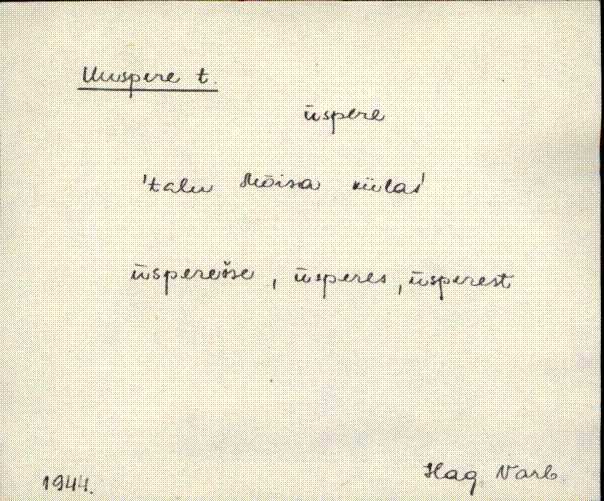 Uuspere t.
ūspere
'talu Mõisa külas'
ūsperesse, ūsperes, ūsperest
1944. Hag Varb.